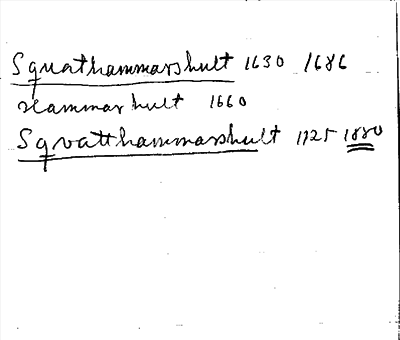 Squathammarshult 1630 1686
Hammarhult 1660
Sqvatthammarshult 1725 1880